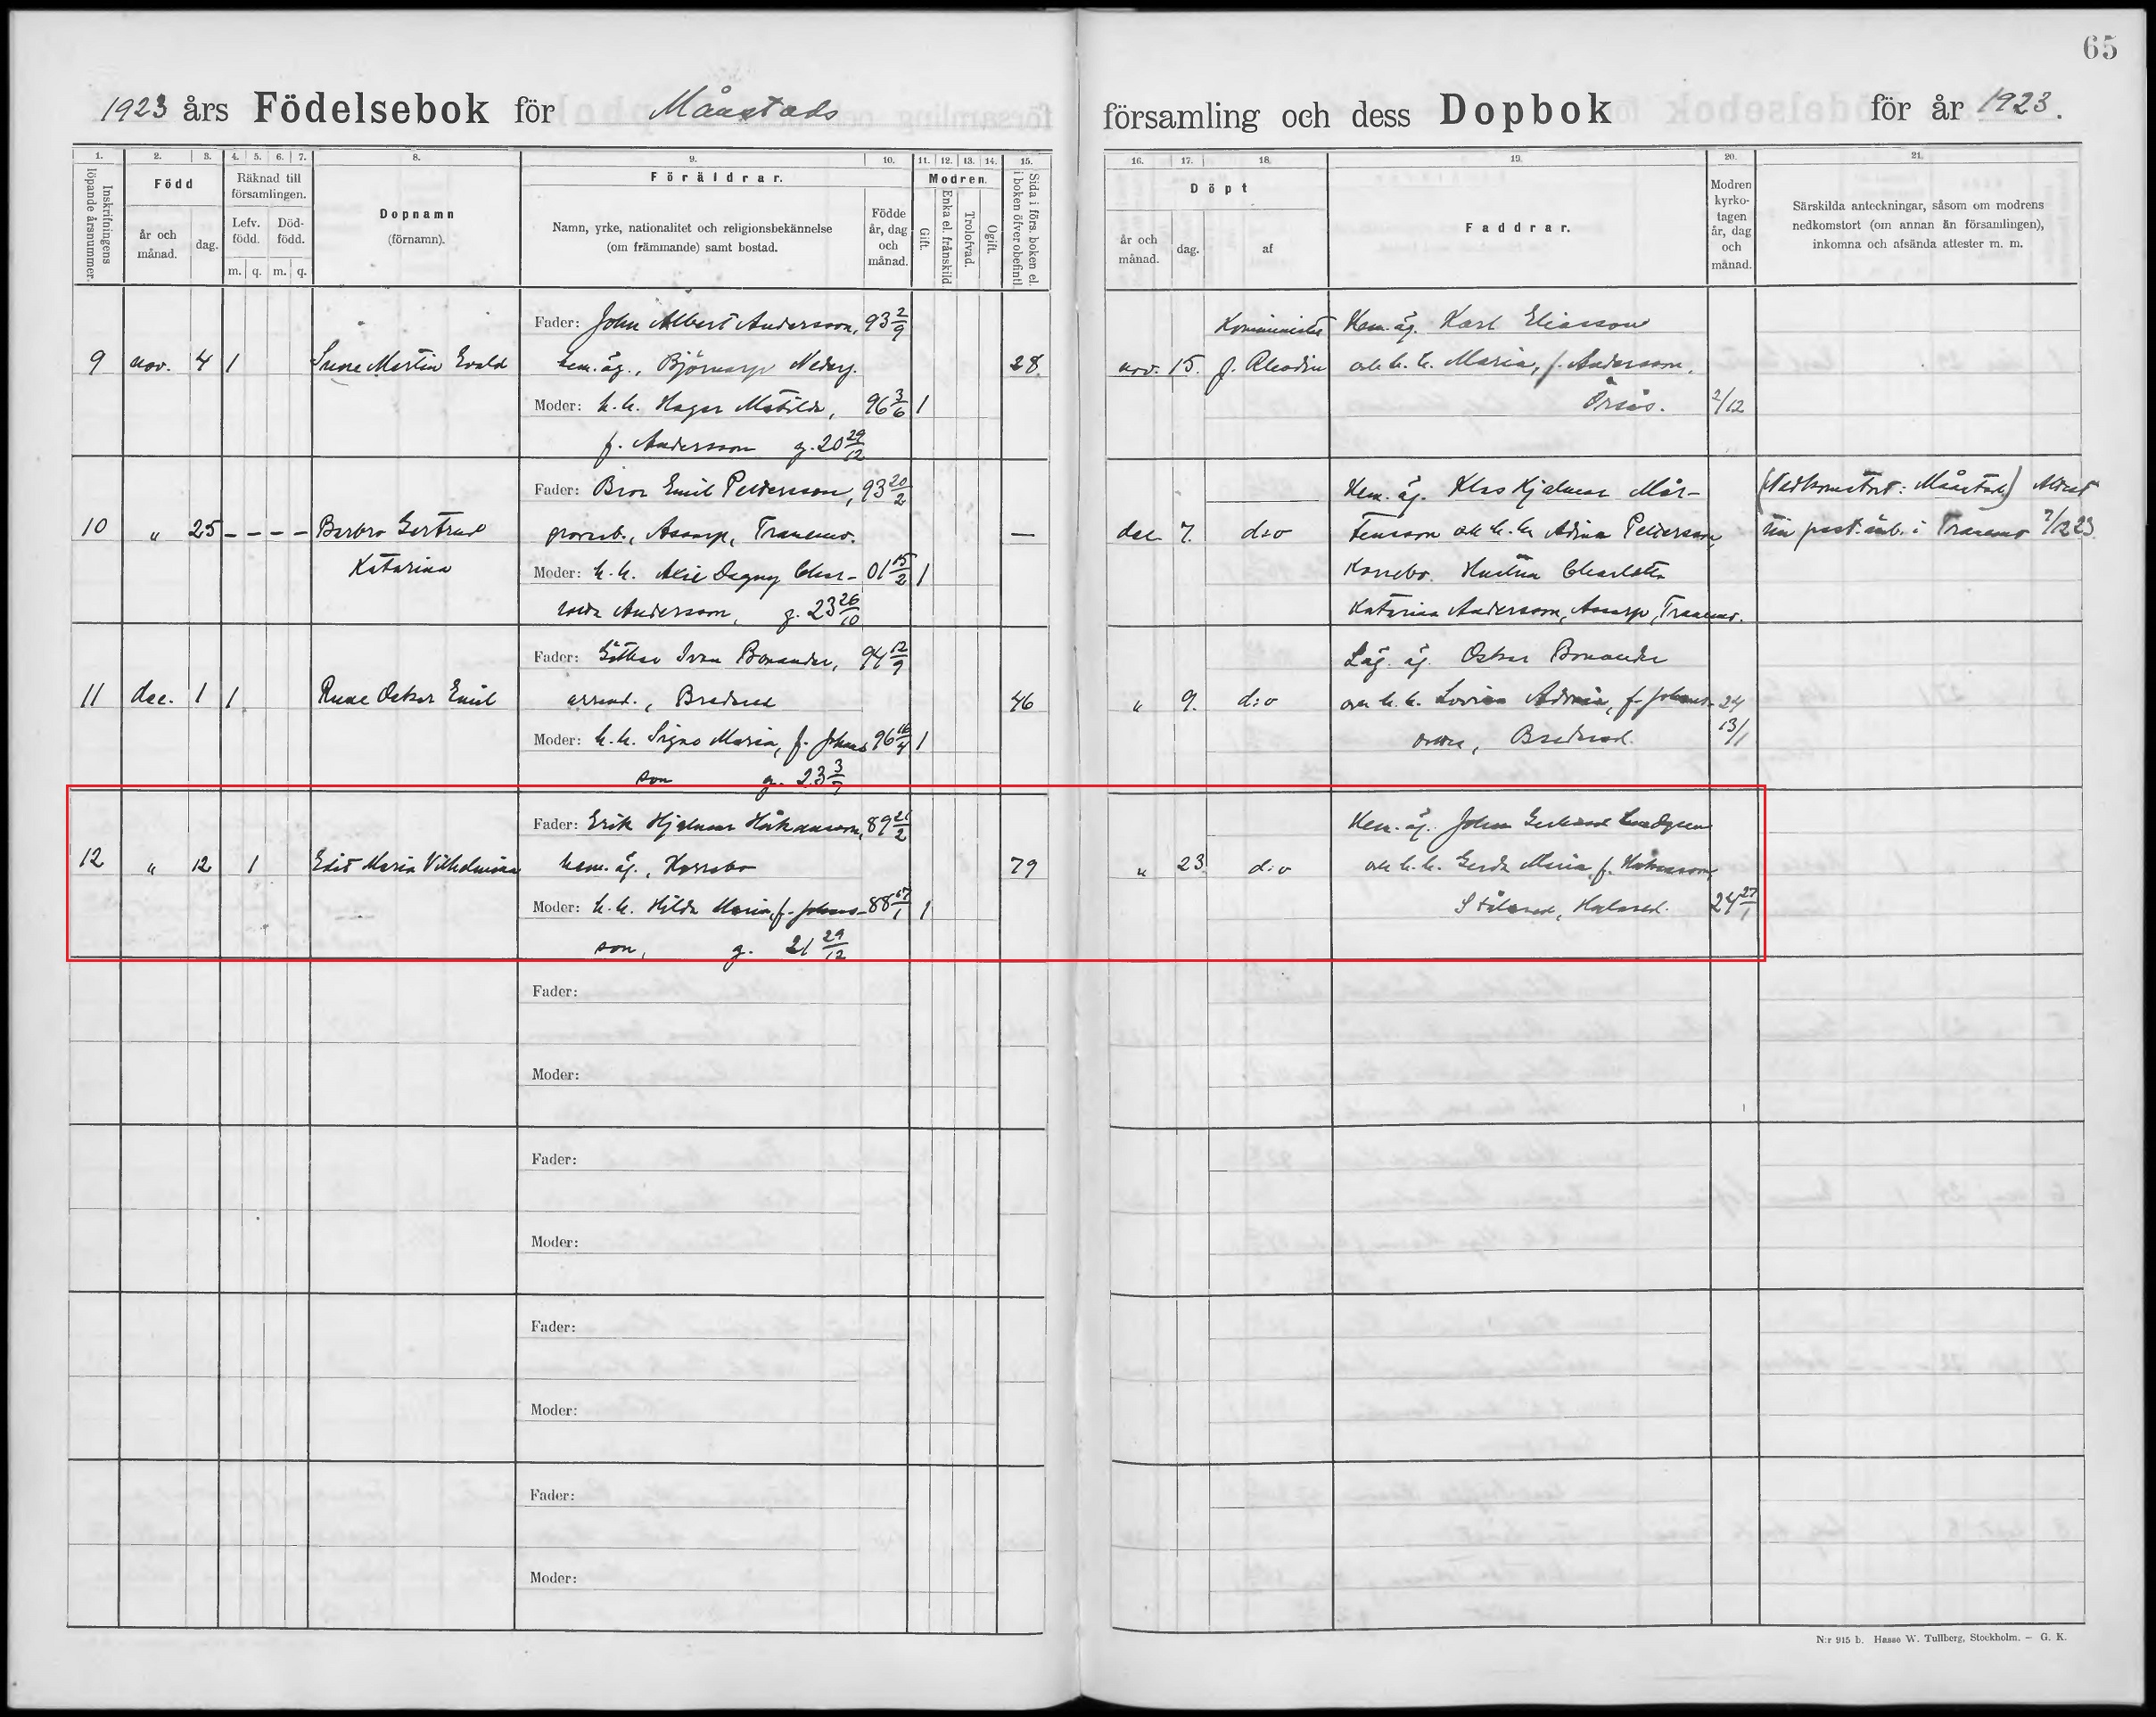 65
1923 års Födelsebok för Månstads
församling och dess Dopbok för år 1923.
1. 2. 3. 4. 5. 6. 7. 8. 9. 10. 11. 12. 13. 14. 15.
Inskrifningens löpande årsnummer.
Född
år och månad.
dag.
Räknad till församlingen.
Lefv. född.
Död-född.
m. q. m. q.
Dopnamn
(förnamn).
Föräldrar.
Namn, yrke, nationalitet och religionsbekännelse
(om främmande) samt bostad.
Födde år, dag och månad.
Modren.
Gift.
Enka el. frånskild
Trolofvad.
Ogift.
Sida i förs. boken el. i boken öfver obefintl
16. 17. 18. 19. 20. 21.
Döpt
år och månad.
dag.
af
Faddrar.
Modren kyrko-tagen år, dag och månad.
Särskilda anteckningar, såsom om modrens
nedkomstort (om annan än församlingen),
inkomna och afsända attester m. m.
Fader: John Albert Andersson, 93 2/9
9 nov. 4 1 Sune Martin Evald hem.äg., Björnarp Nederg. 28.
Moder: h. h. Hagar Matilda, 96 3/6 1
f. Andersson g. 20 29/12
Kominister Hem. äg. Karl Eliasson
nov. 15. J. och h. h. Maria, f. Andersson,
Örsås. 2/12
Fader: Bror Emil Pettersson, 93 20/2
10 " 25 - - - - Barbro Gertrud Assarp, Tranemo. —
Katarina Moder: h. h. Dagny Char- 01 15/2 1
Andersson, g. 23 26/10
Hem. äg. Klas Hjalmar Mår- (Nedkomstort: Månstad) Attest
dec. 7. d:o tensson och h. h. Adina Pettersson, till past. ämb. i Tranemo 7/12 23.
Korrebo. Hustru Charlotta
Katarina Andersson, Assarp, Tranemo.
Fader: Göthe Ivan Bonander, 94 12/9
11 dec. 1 1 Rune Oskar Emil arrend., Bredared 46
Moder: h. h. Signe Maria, f. Johans 96 16/4 1
son g. 23 3/7
Läg. äg. Oskar Bonander
" 9. d:o och h. h. f. Johans- 24
dotter, Bredared. 13/1
Fader: Erik Hjalmar Håkansson, 89 21/2
12 " 12 1 Edit Maria Vilhelmina hem. äg., Korrebo 79
Moder: h. h. Hilda Maria, f. Johans- 88 17/1 1
son, g. 21 29/12
Hem. äg. John Gerhard Lundgren
" 23 d:o och h. h. Gerda Maria, f. Håkansson,
Stålared, Holsared. 24 27/1
Fader:
Moder:
Fader:
Moder:
Fader:
Moder:
Fader:
Moder:
N:r 915 b. Hasse W. Tullberg, Stockholm. — G. K.